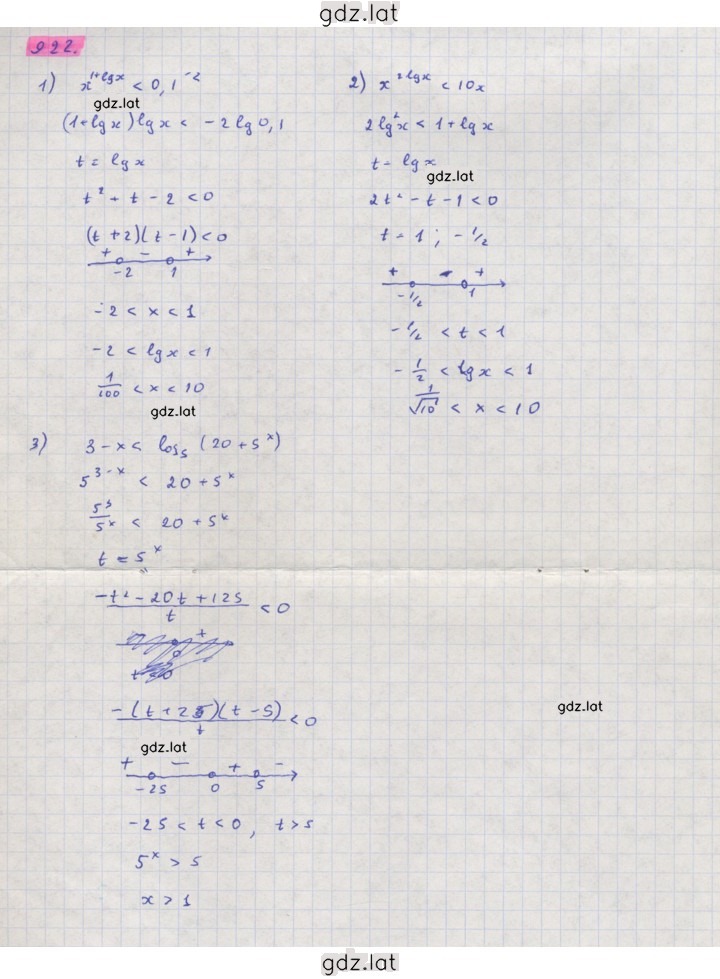 gdz.lat
922.
1) x^(1+lgx) < 0,1^(-2)
gdz.lat
(1+lgx)lgx < -2lg0,1
t = lgx
t² + t - 2 < 0
(t+2)(t-1) < 0
+ - +
-2 1
-2 < x < 1
-2 < lgx < 1
1/100 < x < 10
gdz.lat
2) x^(2lgx) < 10x
2lg²x < 1 + lgx
t = lgx
gdz.lat
2t² - t - 1 < 0
t = 1; -1/2
+ - +
-1/2 1
-1/2 < t < 1
-1/2 < lgx < 1
1/√10 < x < 10
3) 3-x < log₅ (20+5^x)
5^(3-x) < 20+5^x
5³/5^x < 20+5^x
t = 5^x
(-t² - 20t + 125)/t < 0
+
0
(-(t+25)(t-5))/t < 0
gdz.lat
gdz.lat
+ - + -
-25 0 5
-25 < t < 0, t > 5
5^x > 5
x > 1
gdz.lat